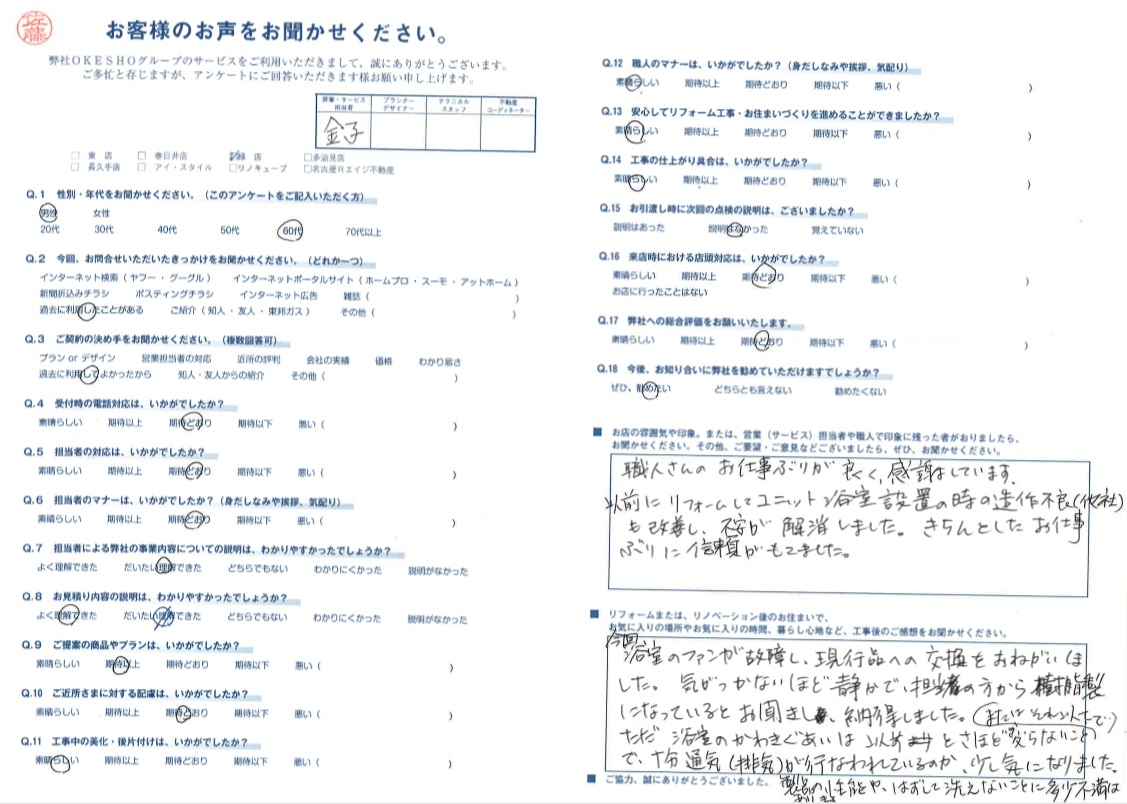 佐藤
お客様のお声をお聞かせください。
弊社OKESHOグループのサービスをご利用いただきまして、誠にありがとうございます。
ご多忙と存じますが、アンケートにご回答いただきます様お願い申し上げます。
営業・サービス担当者 プランナーデザイナー テクニカルスタッフ 不動産コーディネーター
金子
□ 東 店 □ 春日井店 店 □多治見店
□ 長久手店 □ アイ・スタイル □リノキューブ □名古屋日エイジ不動産
Q.1 性別・年代をお聞かせください。（このアンケートをご記入いただく方）
男性 女性
20代 30代 40代 50代 60代 70代以上
Q.2 今回、お問合せいただいたきっかけをお聞かせください。（どれか一つ）
インターネット検索（ ヤフー ・ グーグル ） インターネットポータルサイト（ ホームプロ ・ スーモ ・ アットホーム ）
新聞折込みチラシ ポスティングチラシ インターネット広告 雑誌（ ）
過去に利用したことがある ご紹介（ 知人 ・ 友人 ・ 東邦ガス ） その他（ ）
Q.3 ご契約の決め手をお聞かせください。（複数回答可）
プラン or デザイン 営業担当者の対応 近所の評判 会社の実績 価格 わかり易さ
過去に利用してよかったから 知人・友人からの紹介 その他（ ）
Q.4 受付時の電話対応は、いかがでしたか？
素晴らしい 期待以上 期待どおり 期待以下 悪い（ ）
Q.5 担当者の対応は、いかがでしたか？
素晴らしい 期待以上 期待どおり 期待以下 悪い（ ）
Q.6 担当者のマナーは、いかがでしたか？（身だしなみや挨拶、気配り）
素晴らしい 期待以上 期待どおり 期待以下 悪い（ ）
Q.7 担当者による弊社の事業内容についての説明は、わかりやすかったでしょうか？
よく理解できた だいたい理解できた どちらでもない わかりにくかった 説明がなかった
Q.8 お見積り内容の説明は、わかりやすかったでしょうか？
よく理解できた だいたい理解できた どちらでもない わかりにくかった 説明がなかった
Q.9 ご提案の商品やプランは、いかがでしたか？
素晴らしい 期待以上 期待どおり 期待以下 悪い（ ）
Q.10 ご近所さまに対する配慮は、いかがでしたか？
素晴らしい 期待以上 期待どおり 期待以下 悪い（ ）
Q.11 工事中の美化・後片付けは、いかがでしたか？
素晴らしい 期待以上 期待どおり 期待以下 悪い（ ）
Q.12 職人のマナーは、いかがでしたか？（身だしなみや挨拶、気配り）
素晴らしい 期待以上 期待どおり 期待以下 悪い（ ）
Q.13 安心してリフォーム工事・お住まいづくりを進めることができましたか？
素晴らしい 期待以上 期待どおり 期待以下 悪い（ ）
Q.14 工事の仕上がり具合は、いかがでしたか？
素晴らしい 期待以上 期待どおり 期待以下 悪い（ ）
Q.15 お引渡し時に次回の点検の説明は、ございましたか？
説明はあった 説明はなかった 覚えていない
Q.16 来店時における店頭対応は、いかがでしたか？
素晴らしい 期待以上 期待どおり 期待以下 悪い（ ）
お店に行ったことはない
Q.17 弊社への総合評価をお願いいたします。
素晴らしい 期待以上 期待どおり 期待以下 悪い（ ）
Q.18 今後、お知り合いに弊社を勧めていただけますでしょうか？
ぜひ、勧めたい どちらとも言えない 勧めたくない
■ お店の雰囲気や印象。または、営業（サービス）担当者や職人で印象に残った者がおりましたら、
お聞かせください。その他、ご要望・ご意見などございましたら、ぜひ、お聞かせください。
職人さんの お仕事ぶりが 良く、感謝しています。
以前にリフォームしてユニット浴室設置の時の造作不良(他社)
も改善し、不安が 解消しました。きちんとしたお仕事
ぶりに信頼がもてました。
■ リフォームまたは、リノベーション後のお住まいで、
お気に入りの場所やお気に入りの時間、暮らし心地など、工事後のご感想をお聞かせください。
今回
浴室のファンが故障し、現行品への交換をおねがいしま
した。気がつかないほど静かで、担当者の方から樹脂製
になっているとお聞きし、納得しました。
ただ 浴室のかわきぐあいは 以前とさほど変らないこと
で、十分通気(排気)が行なわれているのか、少し気になりました。
■ ご協力、誠にありがとうございました。
製品の性能や、はずして洗えないことに多少不満は
あります